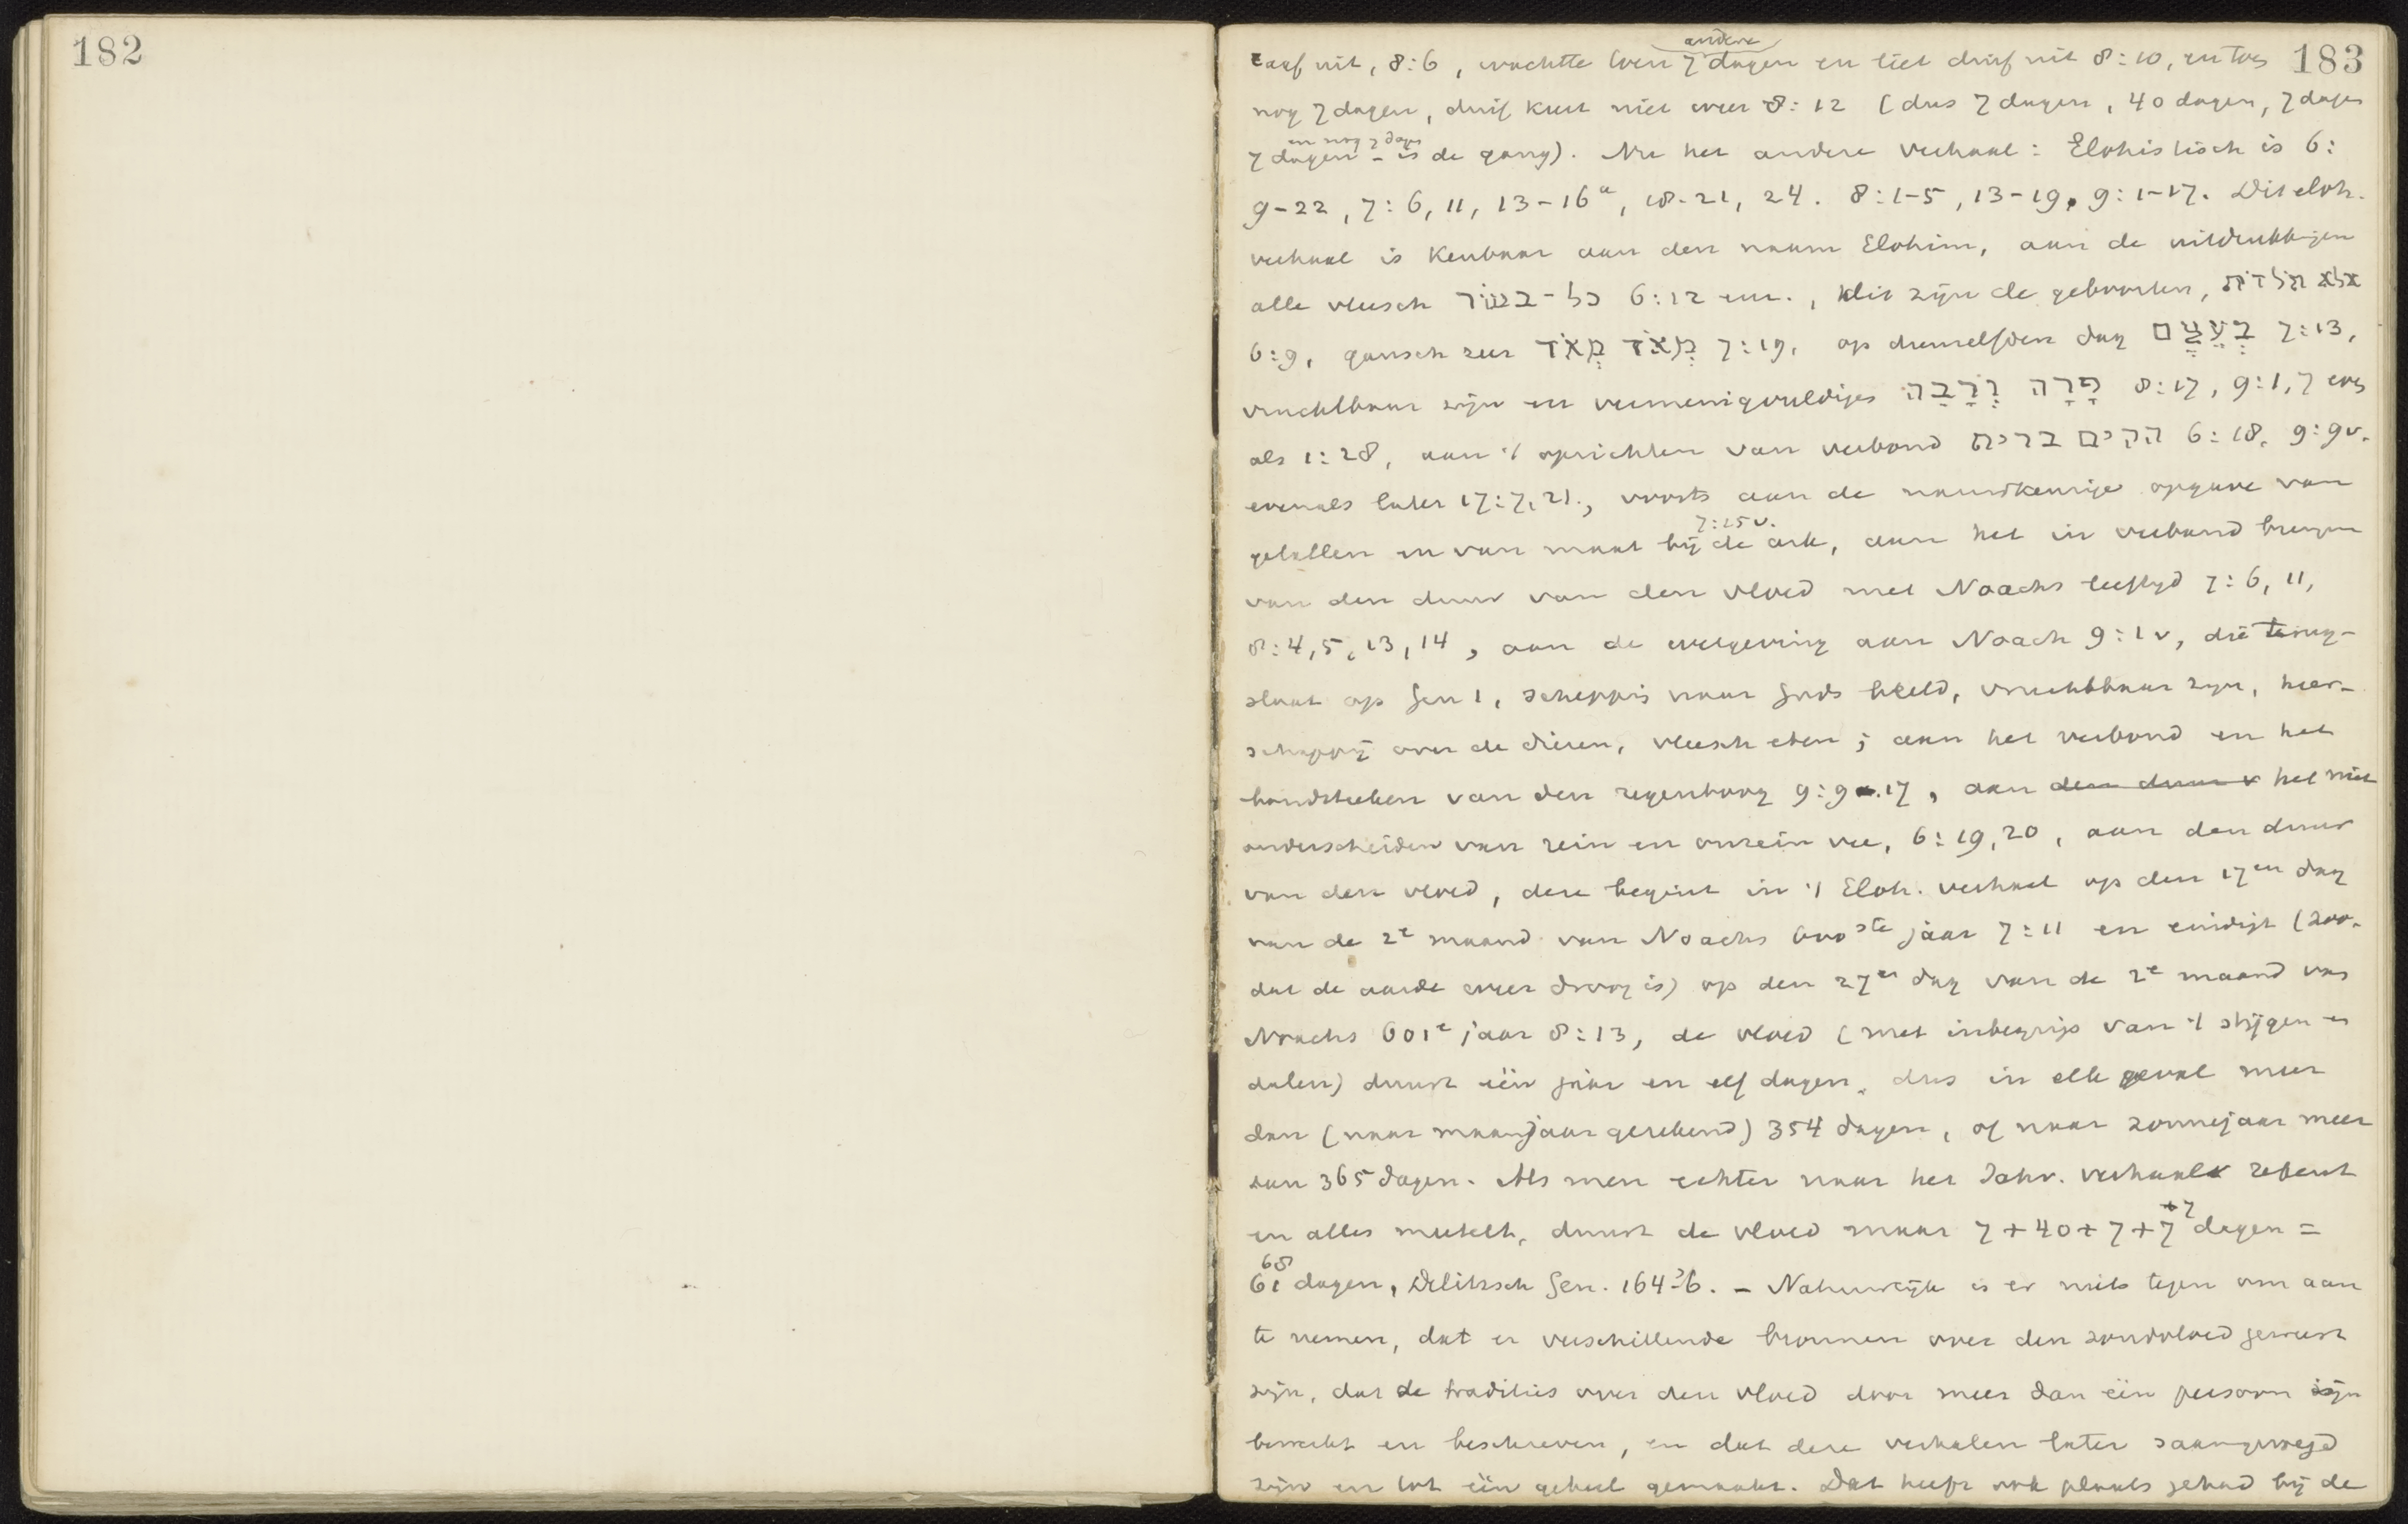 182
183
andere
raaf uit, 8:6, wachtte toen 7 dagen en liet duif uit 8:10, en toen
nog 7 dagen, duif keert niet weer 8:12 (dus 7 dagen, 40 dagen, 7 dagen
en nog 7 dagen
7 dagen - is de gang). Nu het andere verhaal: Elohistisch is 6:
9-22, 7:6, 11, 13-16a, 18-21, 24. 8:1-5, 13-19, 9:1-17. Dit eloh.
verhaal is kenbaar aan den naam Elohim, aan de uitdrukkingen
alle vleesch כל-בשׂר 6:12 enz., dit zijn de geboorten, אלא תולדות
6:9, gansch zeer מְאֹד מְאֹד 7:19, op denzelfden dag בְּעֶצֶם 7:13,
vruchtbaar zijn en vermenigvuldigen פָרָה וְרָבָה 8:17, 9:1,7 evs
als 1:28, aan 't oprichten van verbond הקים ברית 6:18, 9:9v.
evenals later 17:7,21., voorts aan de nauwkeurige opgave van
7:15v.
getallen en van maat bij de ark, aan het in verband brengen
van den duur van den vloed met Noachs leeftijd 7:6, 11,
8:4,5,13,14, aan de wetgeving aan Noach 9:1v, die terug-
slaat op Gen 1, scheppis naar Gods beeld, vruchtbaar zijn, heer-
schappij over de dieren, vleesch eten; aan het verbond en het
bondsteken van den regenboog 9:9-17, aan den duur v het niet
onderscheiden van rein en onrein vee, 6:19,20, aan den duur
van den vloed, deze begint in 't Eloh. verhaal op den 17en dag
van de 2e maand van Noachs 600ste jaar 7:11 en eindigt (zoo-
dat de aarde weer droog is) op den 27en dag van de 2e maand van
Noachs 601e jaar 8:13, de vloed (met inbegrip van 't stijgen en
dalen) duurt één jaar en elf dagen, dus in elk geval meer
dan (naar maanjaar gerekend) 354 dagen, of naar zonnejaar meer
dan 365 dagen. Als men echter naar het Jahv. verhaal rekent
+7
en alles meetelt, duurt de vloed maar 7+40+7+7 dagen =
68
61 dagen, Delitzsch Gen. 164-6. - Natuurlijk is er niets tegen om aan
te nemen, dat er verschillende bronnen over den zondvloed geweest
zijn, dat de tradities over den vloed door meer dan één persoon zijn
bewerkt en beschreven, en dat deze verhalen later saamgevoegd
zijn en tot één geheel gemaakt. Dat heeft ook plaats gehad bij de